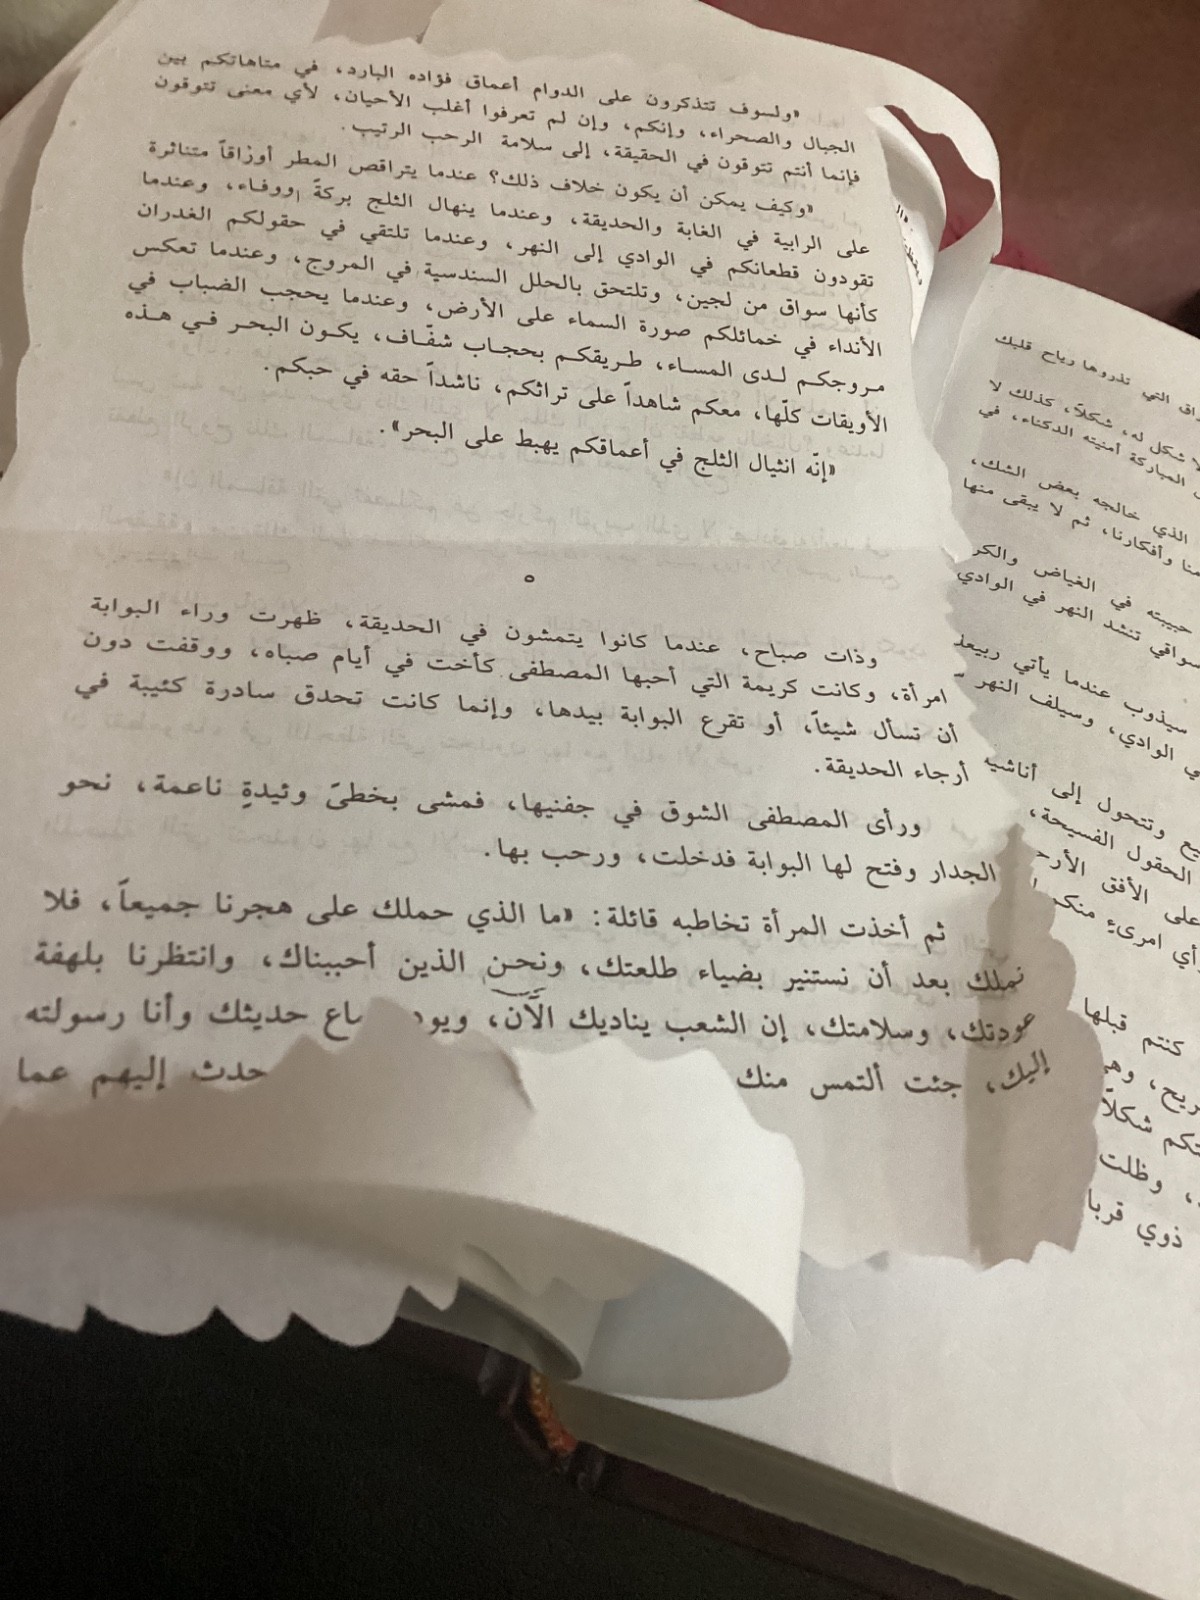 «ولسوف تتذكرون على الدوام أعماق فؤاده البارد، في متاهاتكم بين
الجبال والصحراء، وإنكم، وإن لم تعرفوا أغلب الأحيان، لأي معنى تتوقون
فإنما أنتم تتوقون في الحقيقة، إلى سلامة الرحب الرتيب.
«وكيف يمكن أن يكون خلاف ذلك؟ عندما يتراقص المطر أوراقاً متناثرة
على الرابية في الغابة والحديقة، وعندما ينهال الثلج بركةً ووفاء، وعندما
تقودون قطعانكم في الوادي إلى النهر، وعندما تلتقي في حقولكم الغدران
كأنها سواق من لجين، وتلتحق بالحلل السندسية في المروج، وعندما تعكس
الأنداء في خمائلكم صورة السماء على الأرض، وعندما يحجب الضباب في
مروجكم لدى المساء، طريقكم بحجاب شفّاف، يكون البحر في هذه
الأويقات كلّها، معكم شاهداً على تراثكم، ناشداً حقه في حبكم.
«إنّه انثيال الثلج في أعماقكم يهبط على البحر».
٥
وذات صباح، عندما كانوا يتمشون في الحديقة، ظهرت وراء البوابة
امرأة، وكانت كريمة التي أحبها المصطفى كأخت في أيام صباه، ووقفت دون
أن تسأل شيئاً، أو تقرع البوابة بيدها، وإنما كانت تحدق سادرة كئيبة في
أرجاء الحديقة.
ورأى المصطفى الشوق في جفنيها، فمشى بخطىً وئيدةٍ ناعمة، نحو
الجدار وفتح لها البوابة فدخلت، ورحب بها.
ثم أخذت المرأة تخاطبه قائلة: «ما الذي حملك على هجرنا جميعاً، فلا
نملك بعد أن نستنير بضياء طلعتك، ونحن الذين أحببناك، وانتظرنا بلهفة
عودتك، وسلامتك، إن الشعب يناديك الآن، ويود ماع حديثك وأنا رسولته
إليك، جئت ألتمس منك حدث إليهم عما
التي تذروها رياح قلبك
لا شكل له، شكلاً، كذلك لا
المباركة أمنيته الدكناء، في
الذي خالجه بعض الشك،
منا وأفكارنا، ثم لا يبقى منها
حبيبته في الغياض والكر
سواقي تنشد النهر في الوادي
سيذوب عندما يأتي ربيعد
ي الوادي، وسيلف النهر
يع وتتحول إلى أناشيد
الحقول الفسيحة،
على الأفق الأرح
رأي امرىءٍ منكم
كنتم قبلها
ريح، وهي
تكم شكلاً
، وظلت
ذوي قربا